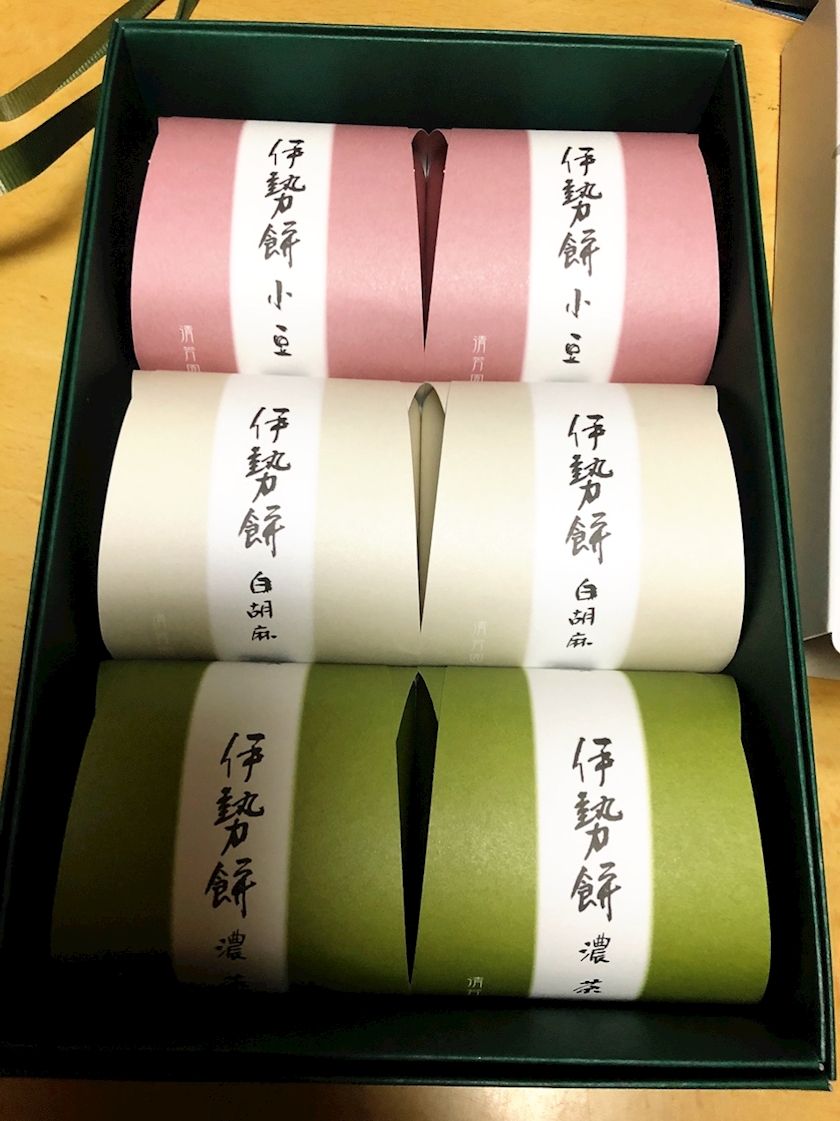 伊勢餅 小豆
清芳園
伊勢餅 小豆
清芳園
伊勢餅 白胡麻
伊勢餅 白胡麻
清芳園
伊勢餅 濃茶
伊勢餅 濃茶
清